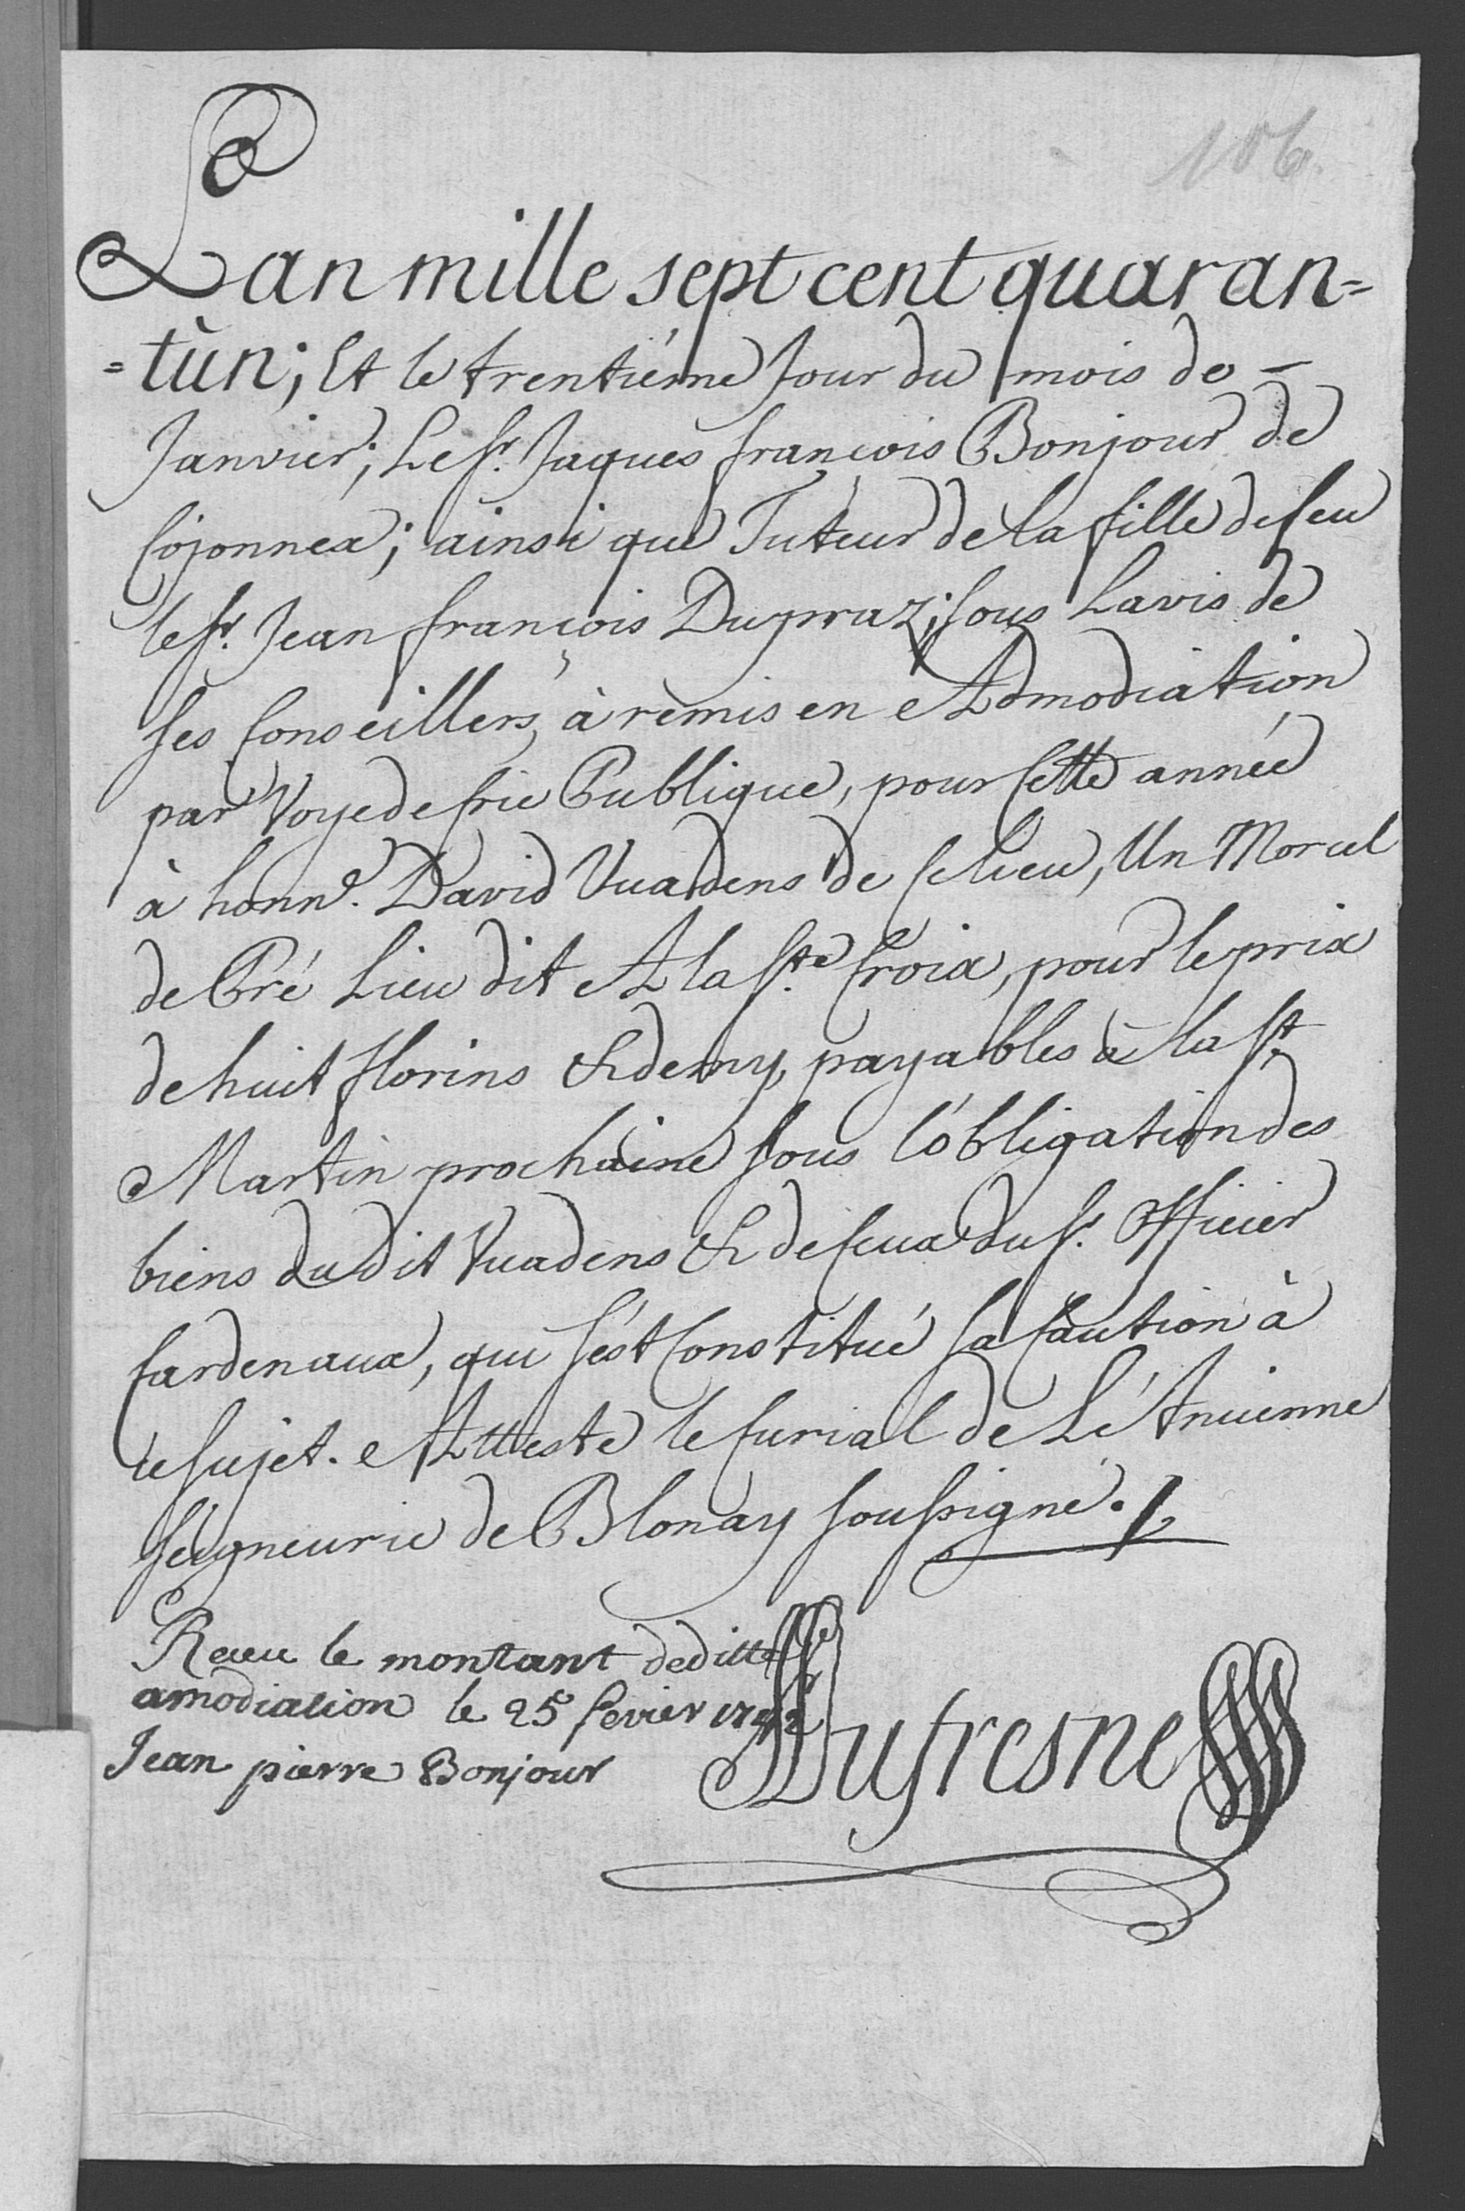 106.
Lan mille sept cent quaran=
=tùn; Et le trentiéme Jour du mois de -
Janvier; Le Sr. Jaques françois Bonjour de
Cojonnex; ainsi que Tuteur de la fille de feu
le Sr. Jean françois Dupraz; sous Lavis de
ses Conseillers, à remis en Admodiation
par Voye de Crie Publique, pour Cette année
à honn.e David Vuadens de Ce lieu, Un Morcel
de Pré Lieu dit A la Ste Croix, pour le prix
de huit florins & demy, payables à la St.
Martin prochaine sous l'obligation des
biens du dit Vuadens & de Ceux du Sr. Officier
Cardenaux, qui s'ést Constitué sa Caution à
ce sujet. Atteste le Curial de L'é Ancienne
Seigneurie de Blonay soussigné./.
Receu le montant de ditte
amodiation le 25 fevier 1742
Jean pierre Bonjour
Dufresne